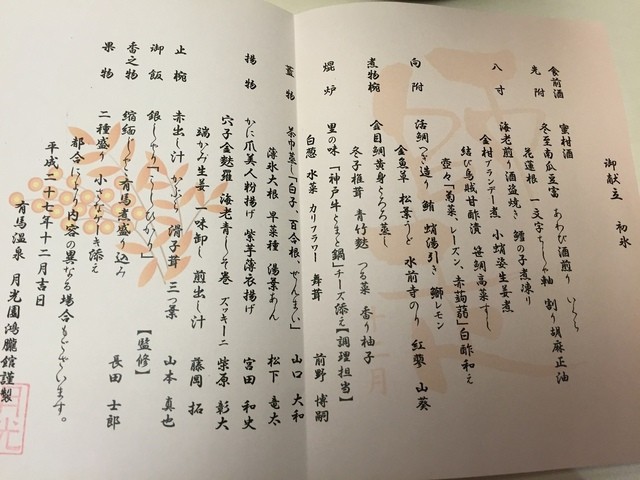 御献立　初氷
食前酒　蜜柑酒
先附　冬至南瓜豆富　あわび酒煎り　いくら
花蓮根　一文字ちしゃ軸　割り胡麻正油
八寸　海老煎り酒盗焼き　鱈の子煮凍り
金柑ブランデー煮　小蛸姿生姜煮
結び烏賊甘酢漬　笹鯛高菜すし
壺々「菊菜、レーズン、赤蒟蒻」白酢和え
向附　活鯛つぎ造り　鮪　蛸湯引き　鰤レモン
金魚草　松葉うど　水前寺のり　紅蓼　山葵
煮物椀　金目鯛黄身とろろ蒸し
冬子椎茸　青竹麩　つる菜　香り柚子
焜炉　里の味「神戸牛とまと鍋」チーズ添え
白葱　水菜　カリフラワー　舞茸
蓋物　茶巾蒸し「白子、百合根、ぜんまい」
薄氷大根　早菜種　湯葉あん
揚物　かに爪美人粉揚げ　紫芋薄衣揚げ
穴子金麩羅　海老青しそ巻　ズッキーニ
端かみ生姜　一味卸し　煎出し汁
止椀　赤出し汁　かぶと　滑子茸　三つ葉
御飯　銀しゃり「こしひかり」
香之物　縮緬じゃこ有馬煮盛り込み
果物　二種盛り　小さなケーキ添え
【調理担当】
前野　博嗣
山口　大和
松下　竜太
宮田　和史
柴原　彰大
藤岡　拓
山本　真也
【監修】
長田　士郎
都合により内容の異なる場合もございます。
平成二十七年十二月吉日
有馬温泉　月光園鴻朧館謹製